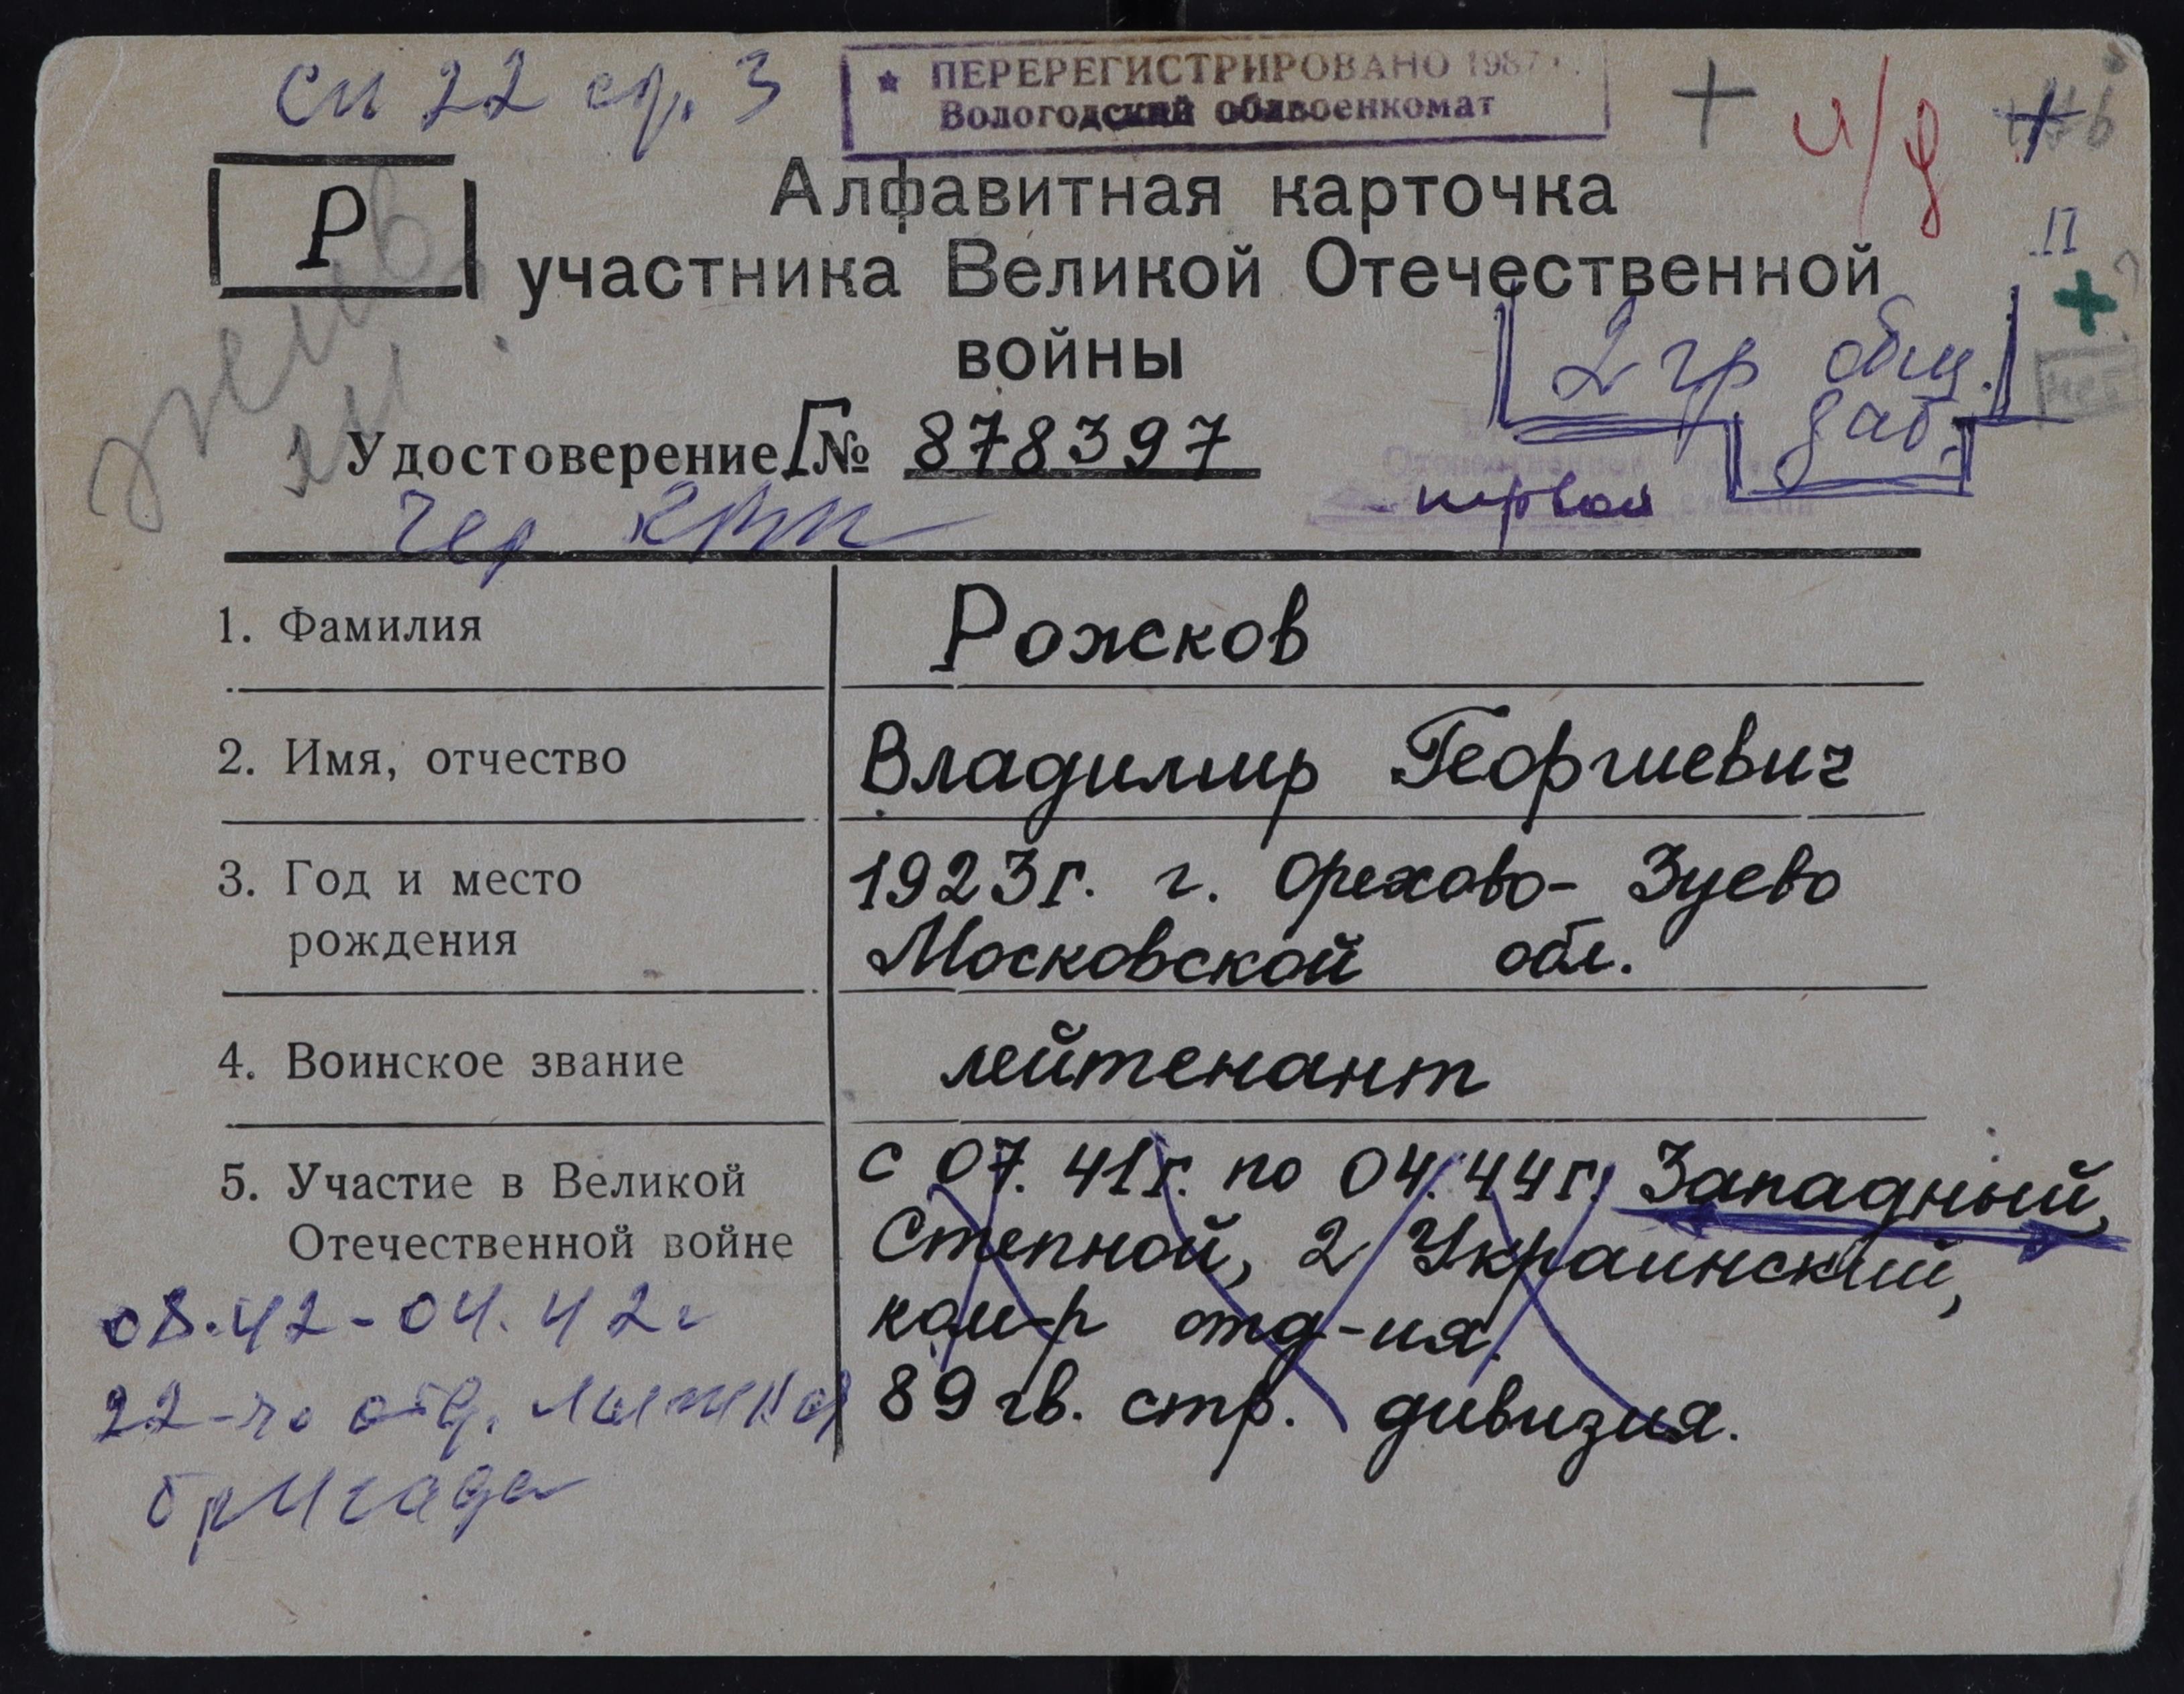 сп 22 ср. 3
★ ПЕРЕРЕГИСТРИРОВАНО 1987 г.
Вологодский облвоенкомат
+ и/д
Р
Алфавитная карточка
участника Великой Отечественной
войны
II
+
2 гр общ.
заб.
нет
Удостоверение Г № 878397
первой
Чер КВК
1. Фамилия Рожков
2. Имя, отчество Владимир Георгиевич
3. Год и место 1923г. г. Орехово-Зуево
рождения Московской обл.
4. Воинское звание лейтенант
5. Участие в Великой с 07.41г. по 04.44г. Западный,
Отечественной войне Степной, 2 Украинский,
08.42-04.42г ком-р отд-ия.
22-я отд. лыжная 89 гв. стр. дивизия.
бригада